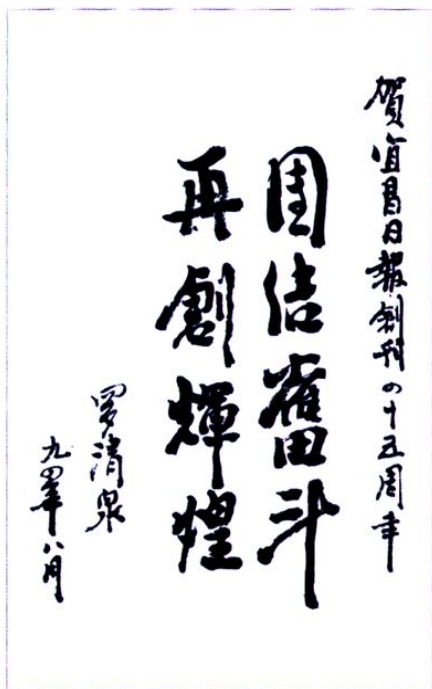 賀宜昌日報創刊四十五周年
团结奮斗
再創輝煌
罗清泉
九四年八月